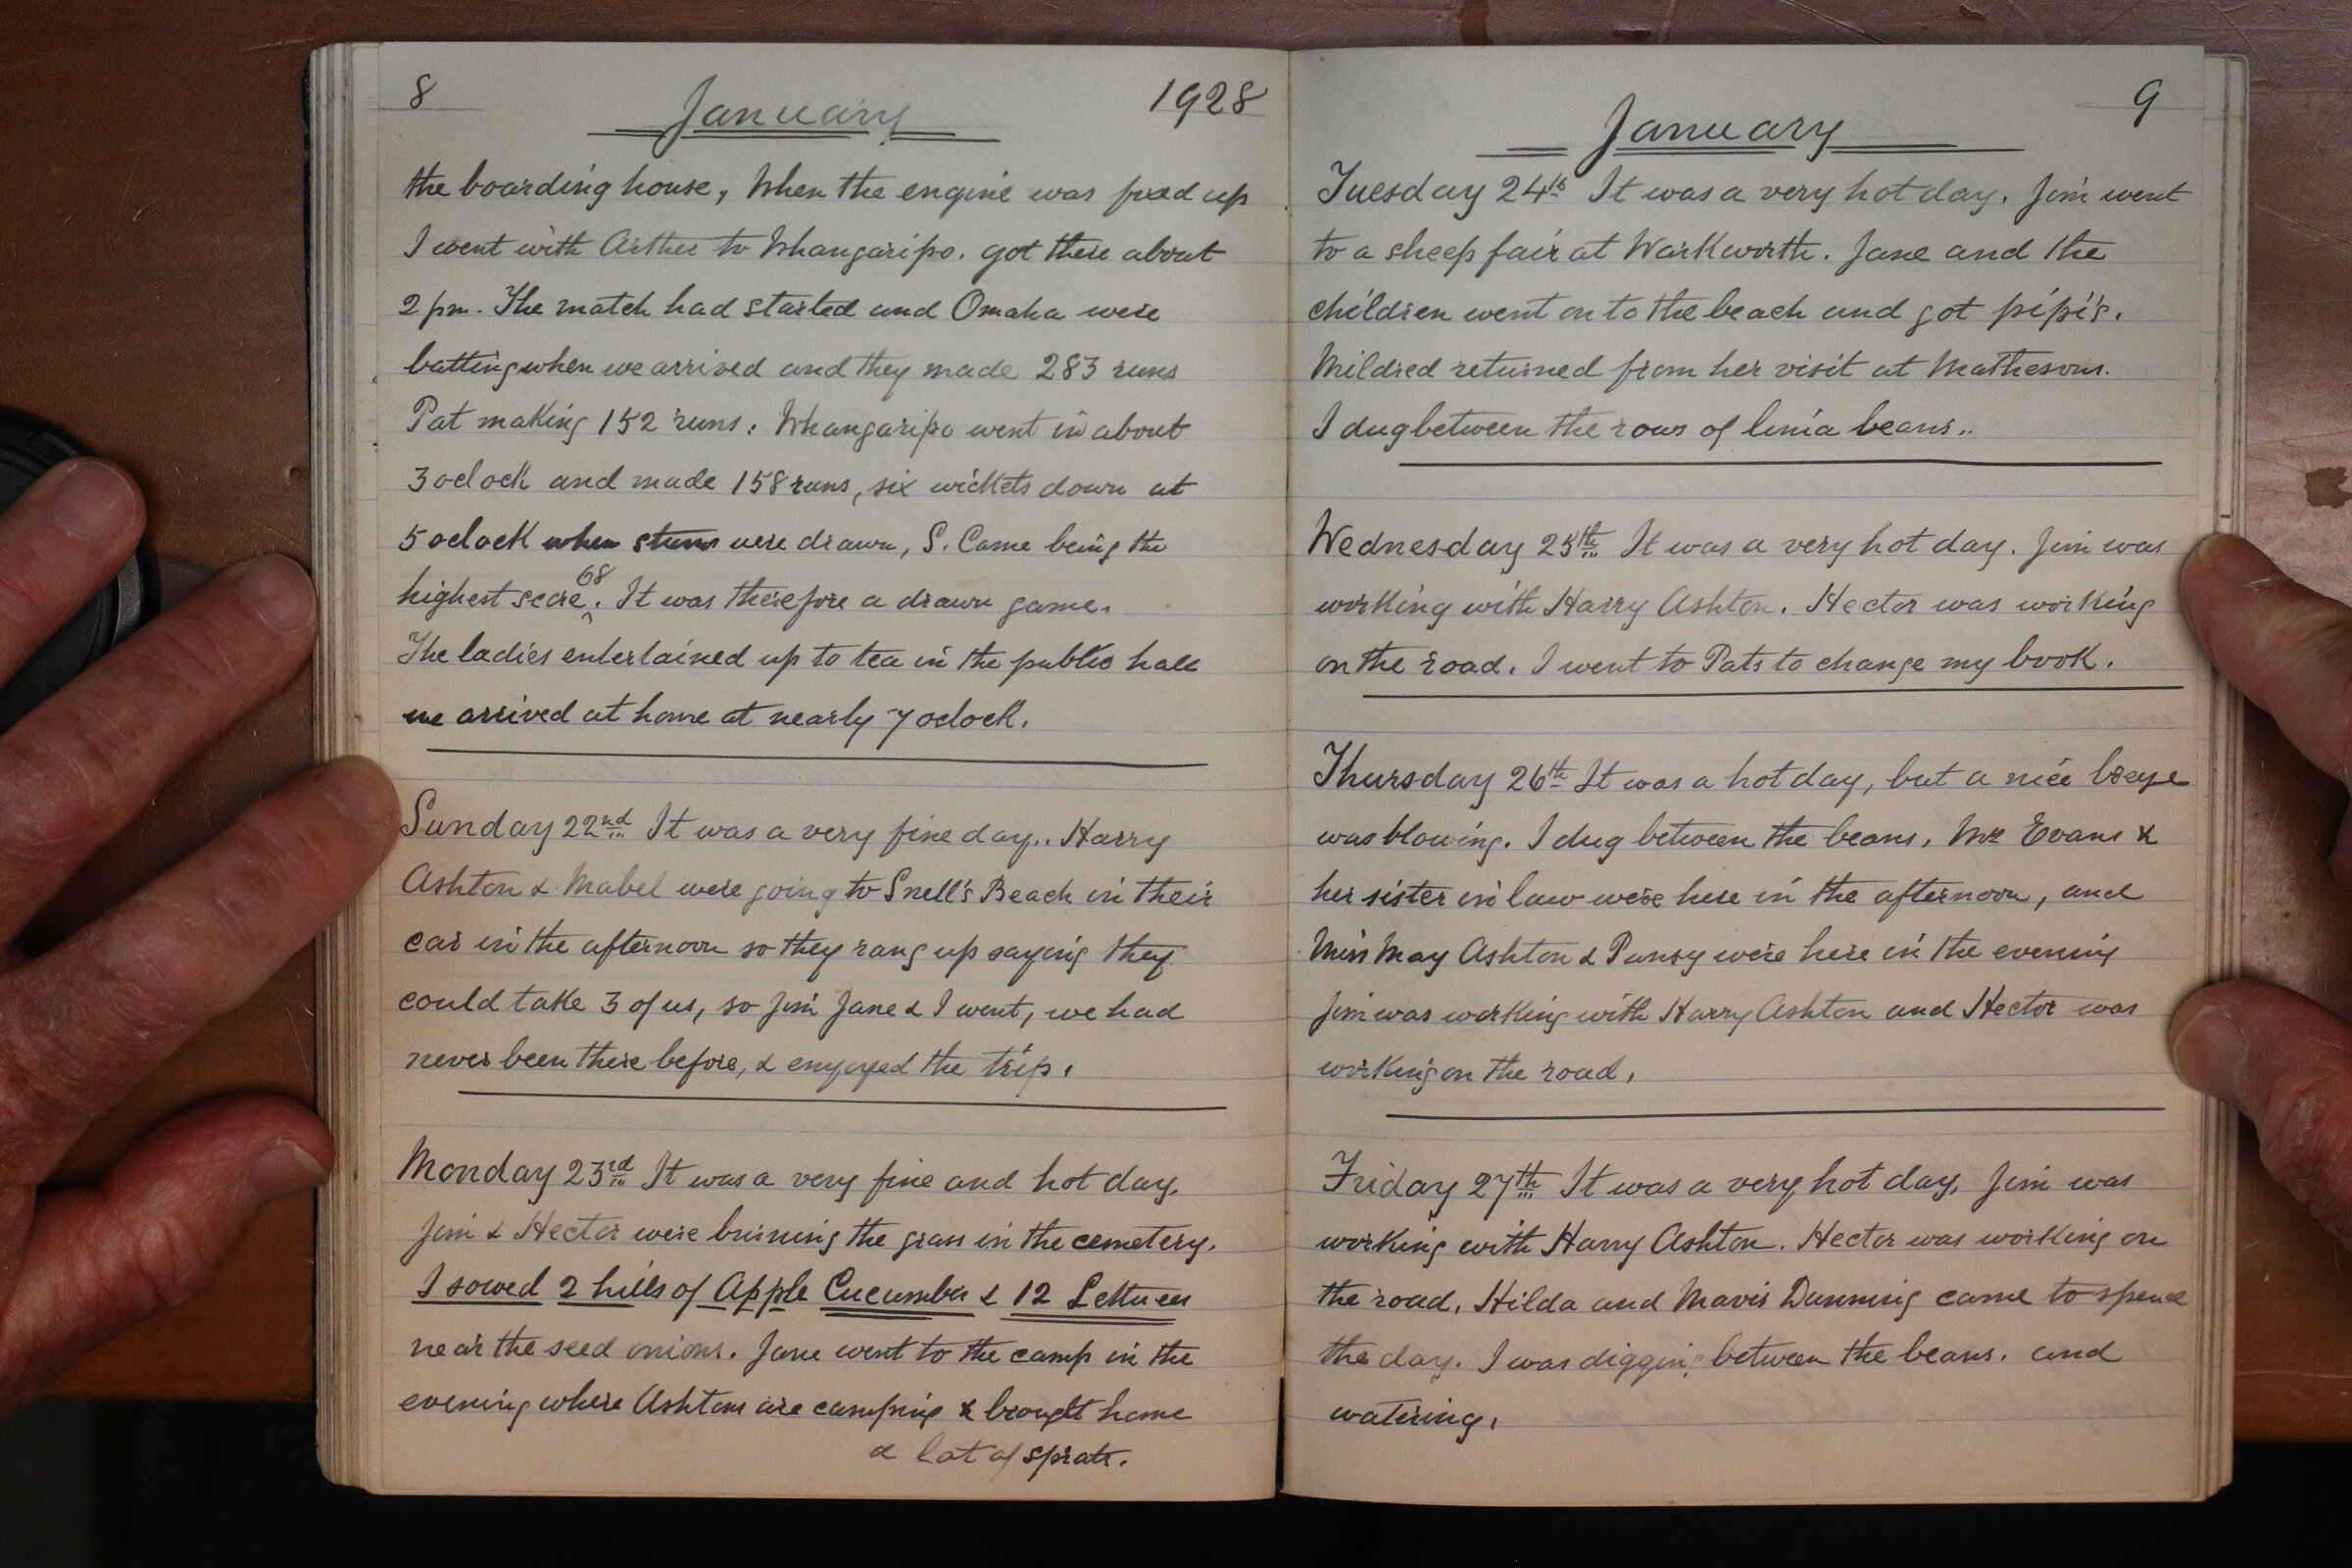 8 January 1928
the boarding house, When the engine was fixed up
I went with Arther to Whangaripo. got there about
2 pm. The match had started and Omaha were
batting when we arrived and they made 283 runs
Pat making 152 runs: Whangaripo went in about
3 oclock and made 158 runs, six wickets down at
5 oclock when stums were drawn, S. Came being the
highest score 68. It was therefore a drawn game.
The ladies entertained up to tea in the public hall
we arrived at home at nearly 7 oclock.
Sunday 22nd It was a very fine day.. Harry
Ashton & Mabel were going to Snell's Beach in their
car in the afternoon so they rang up saying they
could take 3 of us, so Jim Jane & I went, we had
never been there before, & enjoyed the trip.
Monday 23rd It was a very fine and hot day.
Jim & Hector were burning the grass in the cemetery.
I sowed 2 hills of Apple Cucumber & 12 Lettuces
near the seed onions. Jane went to the camp in the
evening where Ashtons are camping & brought home
a lot of sprats.
9
January
Tuesday 24th It was a very hot day. Jim went
to a sheep fair at Warkworth. Jane and the
children went on to the beach and got pipi's.
Mildred returned from her visit at Mathesons.
I dug between the rows of lima beans..
Wednesday 25th It was a very hot day. Jim was
working with Harry Ashton. Hector was working
on the road. I went to Pats to change my book.
Thursday 26th It was a hot day, but a nice breeze
was blowing. I dug between the beans. Mrs Evans &
her sister in law were here in the afternoon, and
Miss May Ashton & Pansy were here in the evening
Jim was working with Harry Ashton and Hector was
working on the road.
Friday 27th It was a very hot day, Jim was
working with Harry Ashton. Hector was working on
the road. Hilda and Mavis Dunning came to spend
the day. I was digging between the beans. and
watering.